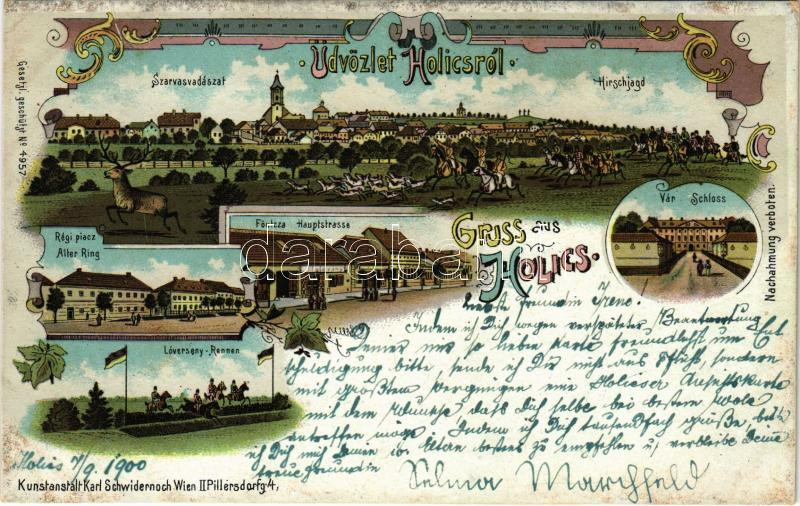 Üdvözlet Holicsról.
Szarvasvadászat
Hirschjagd
Gesetzl. geschützt No 4957
Régi piacz
Alter Ring
Főutcza Hauptstrasse
Gruss aus
Holics.
Vár - Schloss
Nachahmung verboten.
Lóverseny - Rennen
darabanth
liebste Freundin Irene!
Indem ich Dich wegen verspäteter Beantwortung
Deiner mir so lieben Karte freundlichst um Ent
schuldigung bitte, sende ich Dir nicht aus Pflicht, sondern
mit größten Vergnügen eine Holicser Ansichtskarte
mit dem Wunsche das Dich selbe bei bestem Wole
antreffen möge. Indem ich Dich tausendfach grüße, bitte
ich Dich mich Deinen l. Eltern bestens zu empfehlen u. verbleibe Deine
treue Freundin
Selma Marchfeld
Holics 7/9. 1900
Kunstanstalt Karl Schwidernoch Wien II Pillersdorfg. 4,